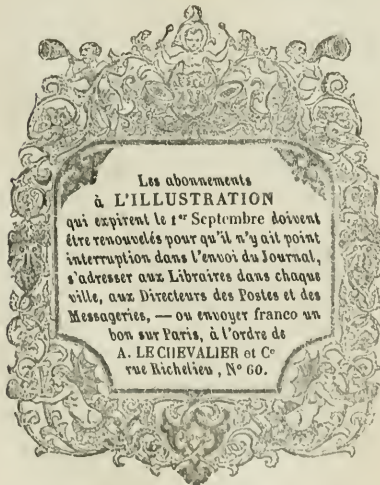 Les abonnements
à L'ILLUSTRATION
qui expirent le 1er Septembre doivent
être renouvelés pour qu'il n'y ait point
interruption dans l'envoi du Journal,
s'adresser aux Libraires dans chaque
ville, aux Directeurs des Postes et des
Messageries, — ou envoyer franco un
bon sur Paris, à l'ordre de
A. LECHEVALIER et Ce
rue Richelieu, No 60.